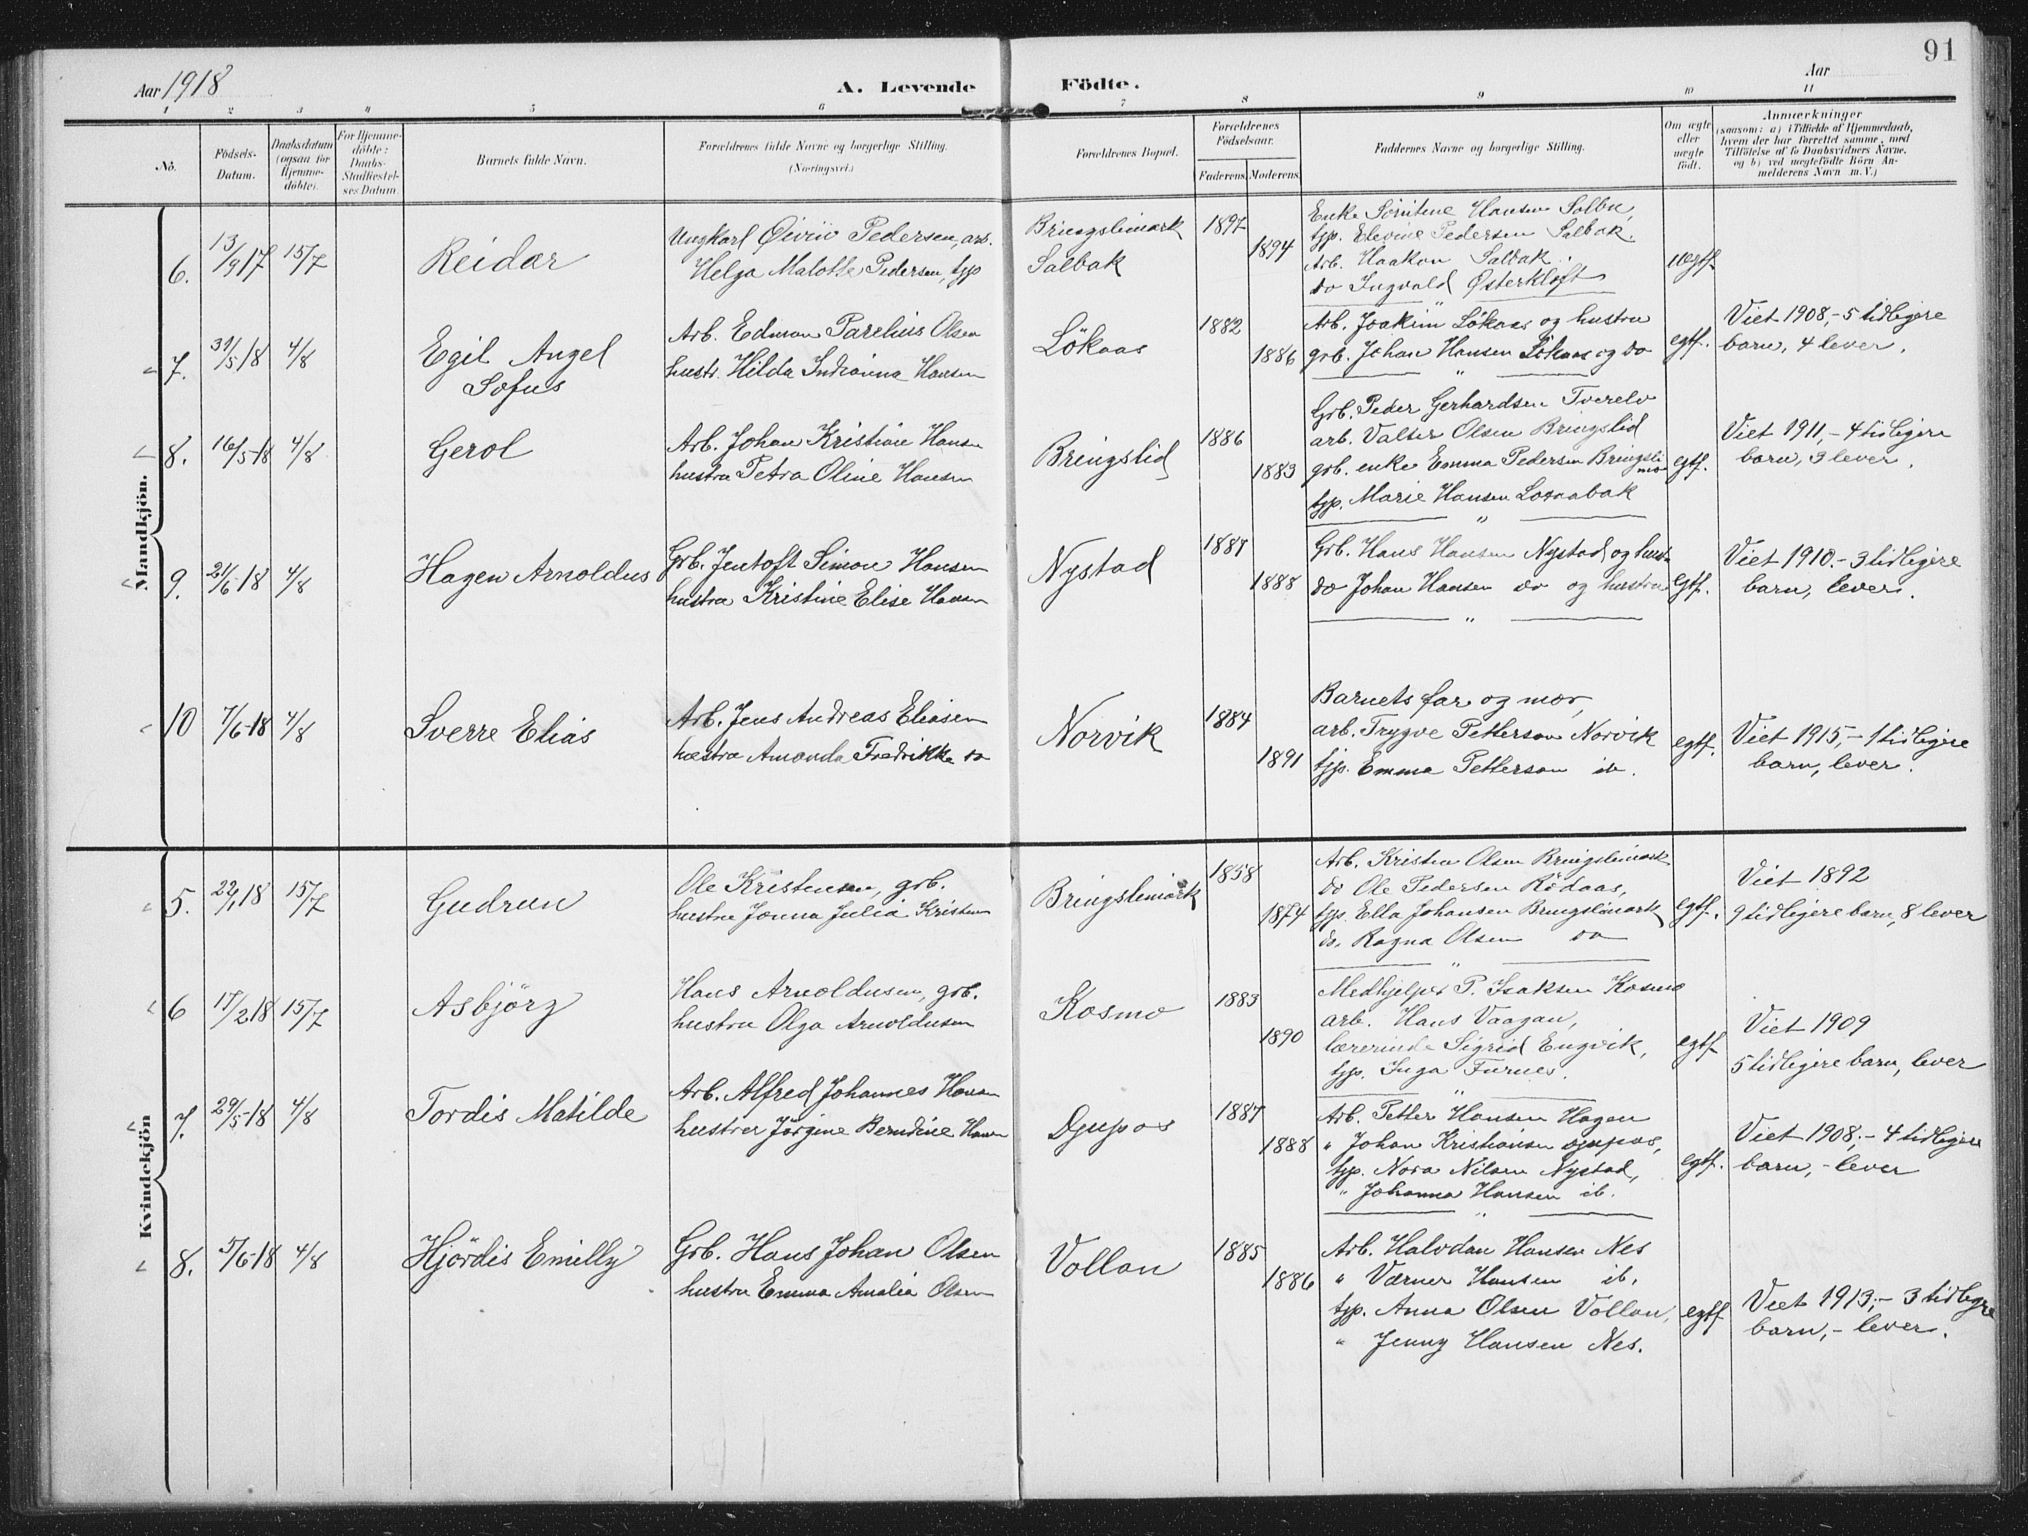 91
Aar 1918
A. Levende
Födte.
Aar
1 2 3 4 5 6 7 8 9 10 11
No.
Födsels-
Datum.
Daabsdatum
(ogsaa for
Hjemme-
döbte).
For Hjemme-
döbte:
Daabs-
Stadfæstel-
ses Datum.
Barnets fulde Navn.
Forældrenes fulde Navne og borgerlige Stilling.
(Næringsvei.)
Forældrenes Bopæl.
Forældrenes
Födselsaar.
Faderens. Moderens.
Faddernes Navne og borgerlige Stilling.
Om ægte
eller
uægte
födt.
Anmærkninger
(saasom: a) i Tilfælde af Hjemmedaab,
hvem der har forrettet samme, med
Tilföielse af to Daabsvidners Navne,
og b) ved uægtefödte Börn An-
melderens Navn m. V.)
Mandkjön.
6. 13/9 17 15/7 Reidar
Ungkarl Øivin Pedersen, arb.
Helga Malotte Pedersen, tjp
Bringslimark
Salbak
1897
1894
Enke Hansen
tjp. Elevine Pedersen Salbak.
Arb. Haakon Salbak.
do Ingvald Østerkløft
uegtf.
7. 31/5 18 4/8 Egil Angel
Sofus
Arb. Edmon Parelius Olsen
hustr. Hilda Indianna Hansen
Lökaas
1882
1886
Arb. Joakim Lökaas og hustru
grb. Johan Hansen Lökaas og do
egtf.
Viet 1908,- 5 tidligere
barn, 4 lever.
8. 16/5-18 4/8 Gerol
Arb. Johan Kristian Hansen
hustru Petra Oline Hansen
Bringslid
1886
1883
Grb. Peder Gerhardsen Tverelv
arb. Valter Olsen Bringslid
grb. enke Emma Pedersen Bringsli
tjp. Marie Hansen
egtf.
Viet 1911,- 4 tidligere
barn, 3 lever.
9. 21/6-18 4/8 Hagen Arnoldus
Grb. Jentoft Simon Hansen
hustru Kristine Elise Hansen
Nystad
1887
1888
Grb. Hans Hansen Nystad og hust.
do Johan Hansen do og hustru
egtf.
Viet 1910.- 3 tidligere
barn, lever.
10 7/6-18 4/8 Sverre Elias
Arb. Jens Andreas Eliasen
hustru Amanda Fredrikke do
Norvik
1884
1891
Barnets far og mor,
arb. Trygve Petterson Norvik
tjp. Emma Petterson ib.
egtf.
Viet 1915,- 1 tidligere
barn, lever.
Kvindekjön
5. 22/1 18 15/7 Gudrun
Ole Kristensen, grb.
hustru Jonna Julia Kristen
Bringslimark
1858
1874
Arb. Kristen Olsen Bringslimark
do Ole Pedersen Rödaas,
tjp. Ella Johansen Bringslimark
do. Ragna Olsen do
egtf.
Viet 1892
9 tidligere barn, 8 lever
6 17/2 18 15/7 Asbjörg
Hans Arnoldusen, grb.
hustru Olga Arnoldusen
Kosmo
1883
1890
Medhjelper P. Isaksen Kosmo
arb. Hans Vaagan,
lærerinde Sigrid Engvik,
tjp. Inga Furnes.
egtf.
Viet 1909
5 tidligere barn, lever
7. 29/5-18 4/8 Tordis Matilde
Arb. Alfred Johannes Hansen
hustru Jörgine Berndine Hansen
Djupos
1887
1888
Arb. Petter Hansen Hagen
" Johan Kristiansen Djupos,
tjp. Nora Nilsen Nystad,
" Johanna Hansen ib.
egtf.
Viet 1908,- 4 tidligere
barn,- lever
8. 5/6-18 4/8 Hjördis Emilly
Grb. Hans Johan Olsen
hustru Emma Amalia Olsen
Vollan
1885
1886
Arb. Halvdan Hansen Nes
" Værner Hansen ib.
tjp. Anna Olsen Vollan,
" Jenny Hansen Nes.
egtf
Viet 1913,- 3 tidligere
barn,- lever.